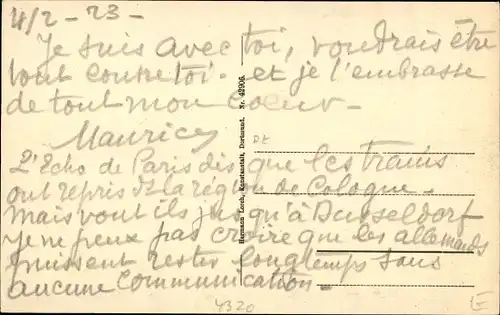 4/2 - 23 -
Je suis avec toi, voudrais être
tout contre toi - et je t'embrasse
de tout mon coeur -
Maurice
L'Echo de Paris dis que les trains
ont repris ds la région de Cologne -
Mais vont ils jusqu'à Dusseldorf
Je ne peux pas croire que les allemands
puissent rester longtemps sans
aucune communication -
Hermann Lorch, Kunstanstalt, Dortmund. Nr. 42906.
DE
4320